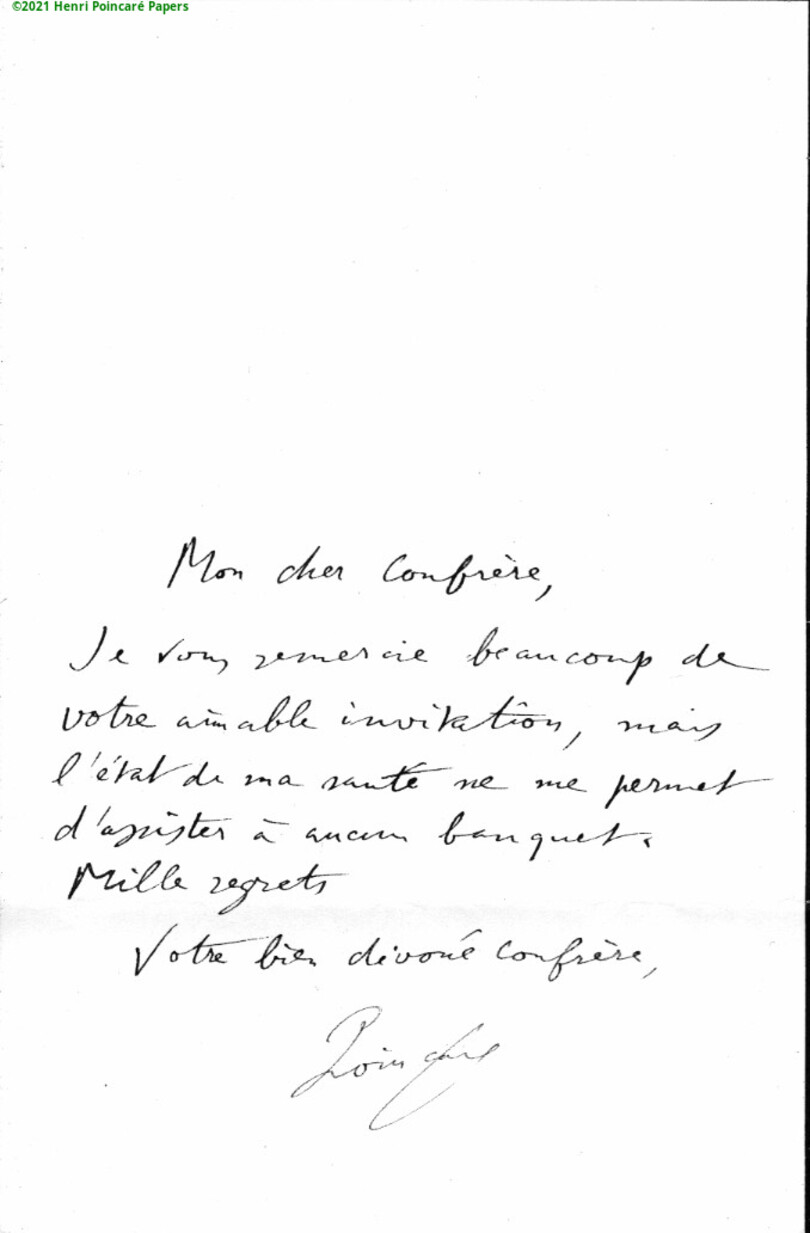 ©2021 Henri Poincaré Papers
Mon cher Confrère,
Je vous remercie beaucoup de
votre aimable invitation, mais
l'état de ma santé ne me permet
d'assister à aucun banquet.
Mille regrets
Votre bien dévoué confrère,
Poincaré